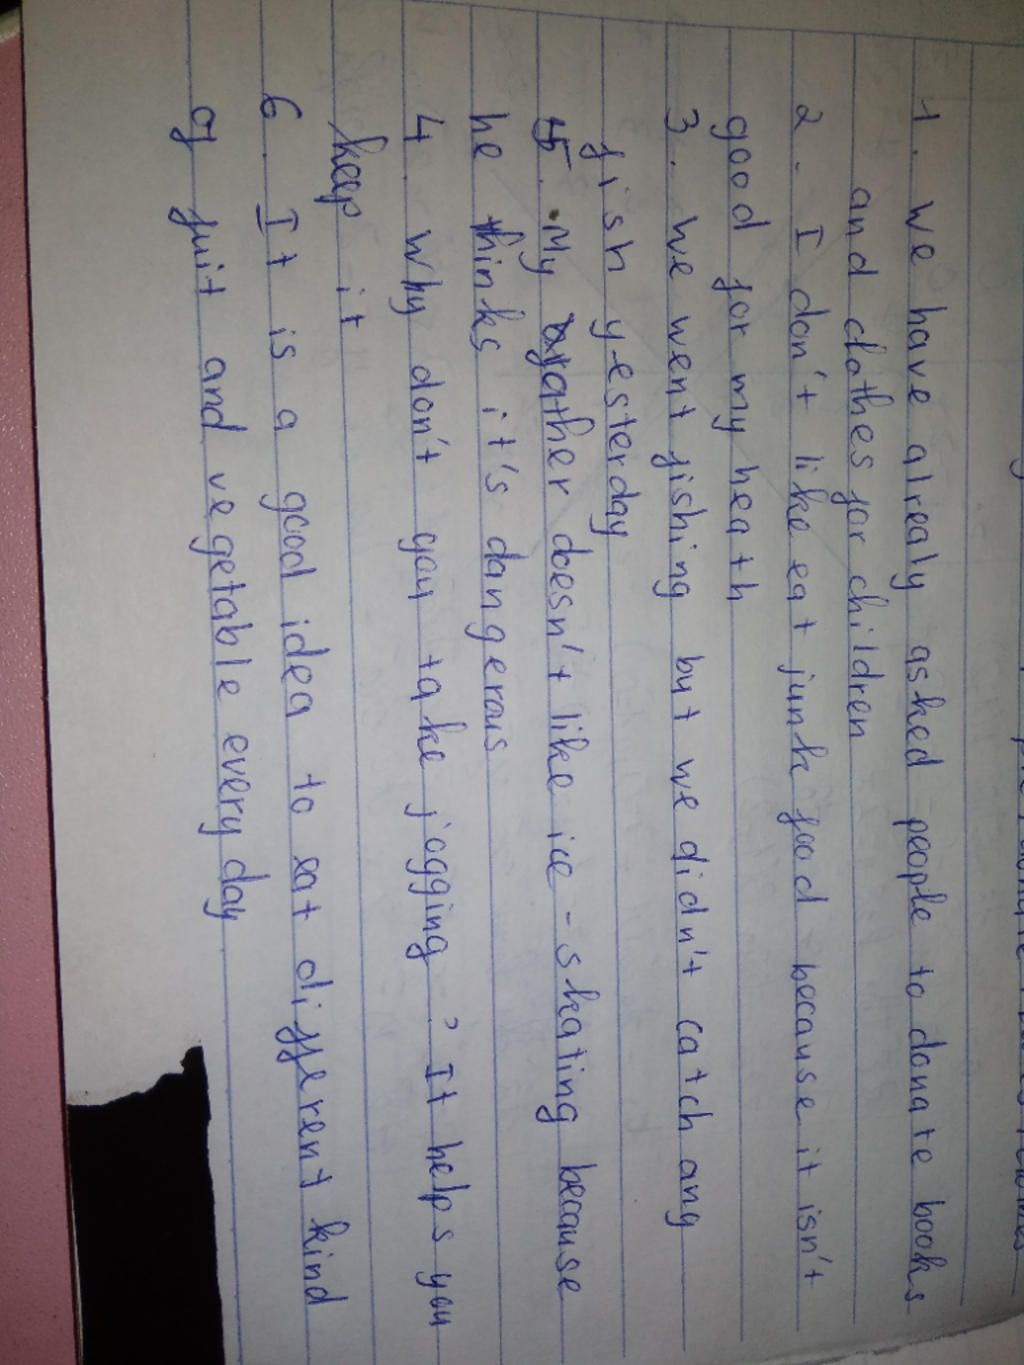 1. We have alrealy asked people to donate books
and clothes for children
2. I don't like eat junk food because it isn't
good for my heath
3. We went fishing but we didn't catch any
fish yesterday
5. My father doesn't like ice-skating because
he thinks it's dangerous
4. Why don't you take jogging? It helps you
keep it
6. It is a good idea to eat different kind
of fuit and vegetable every day